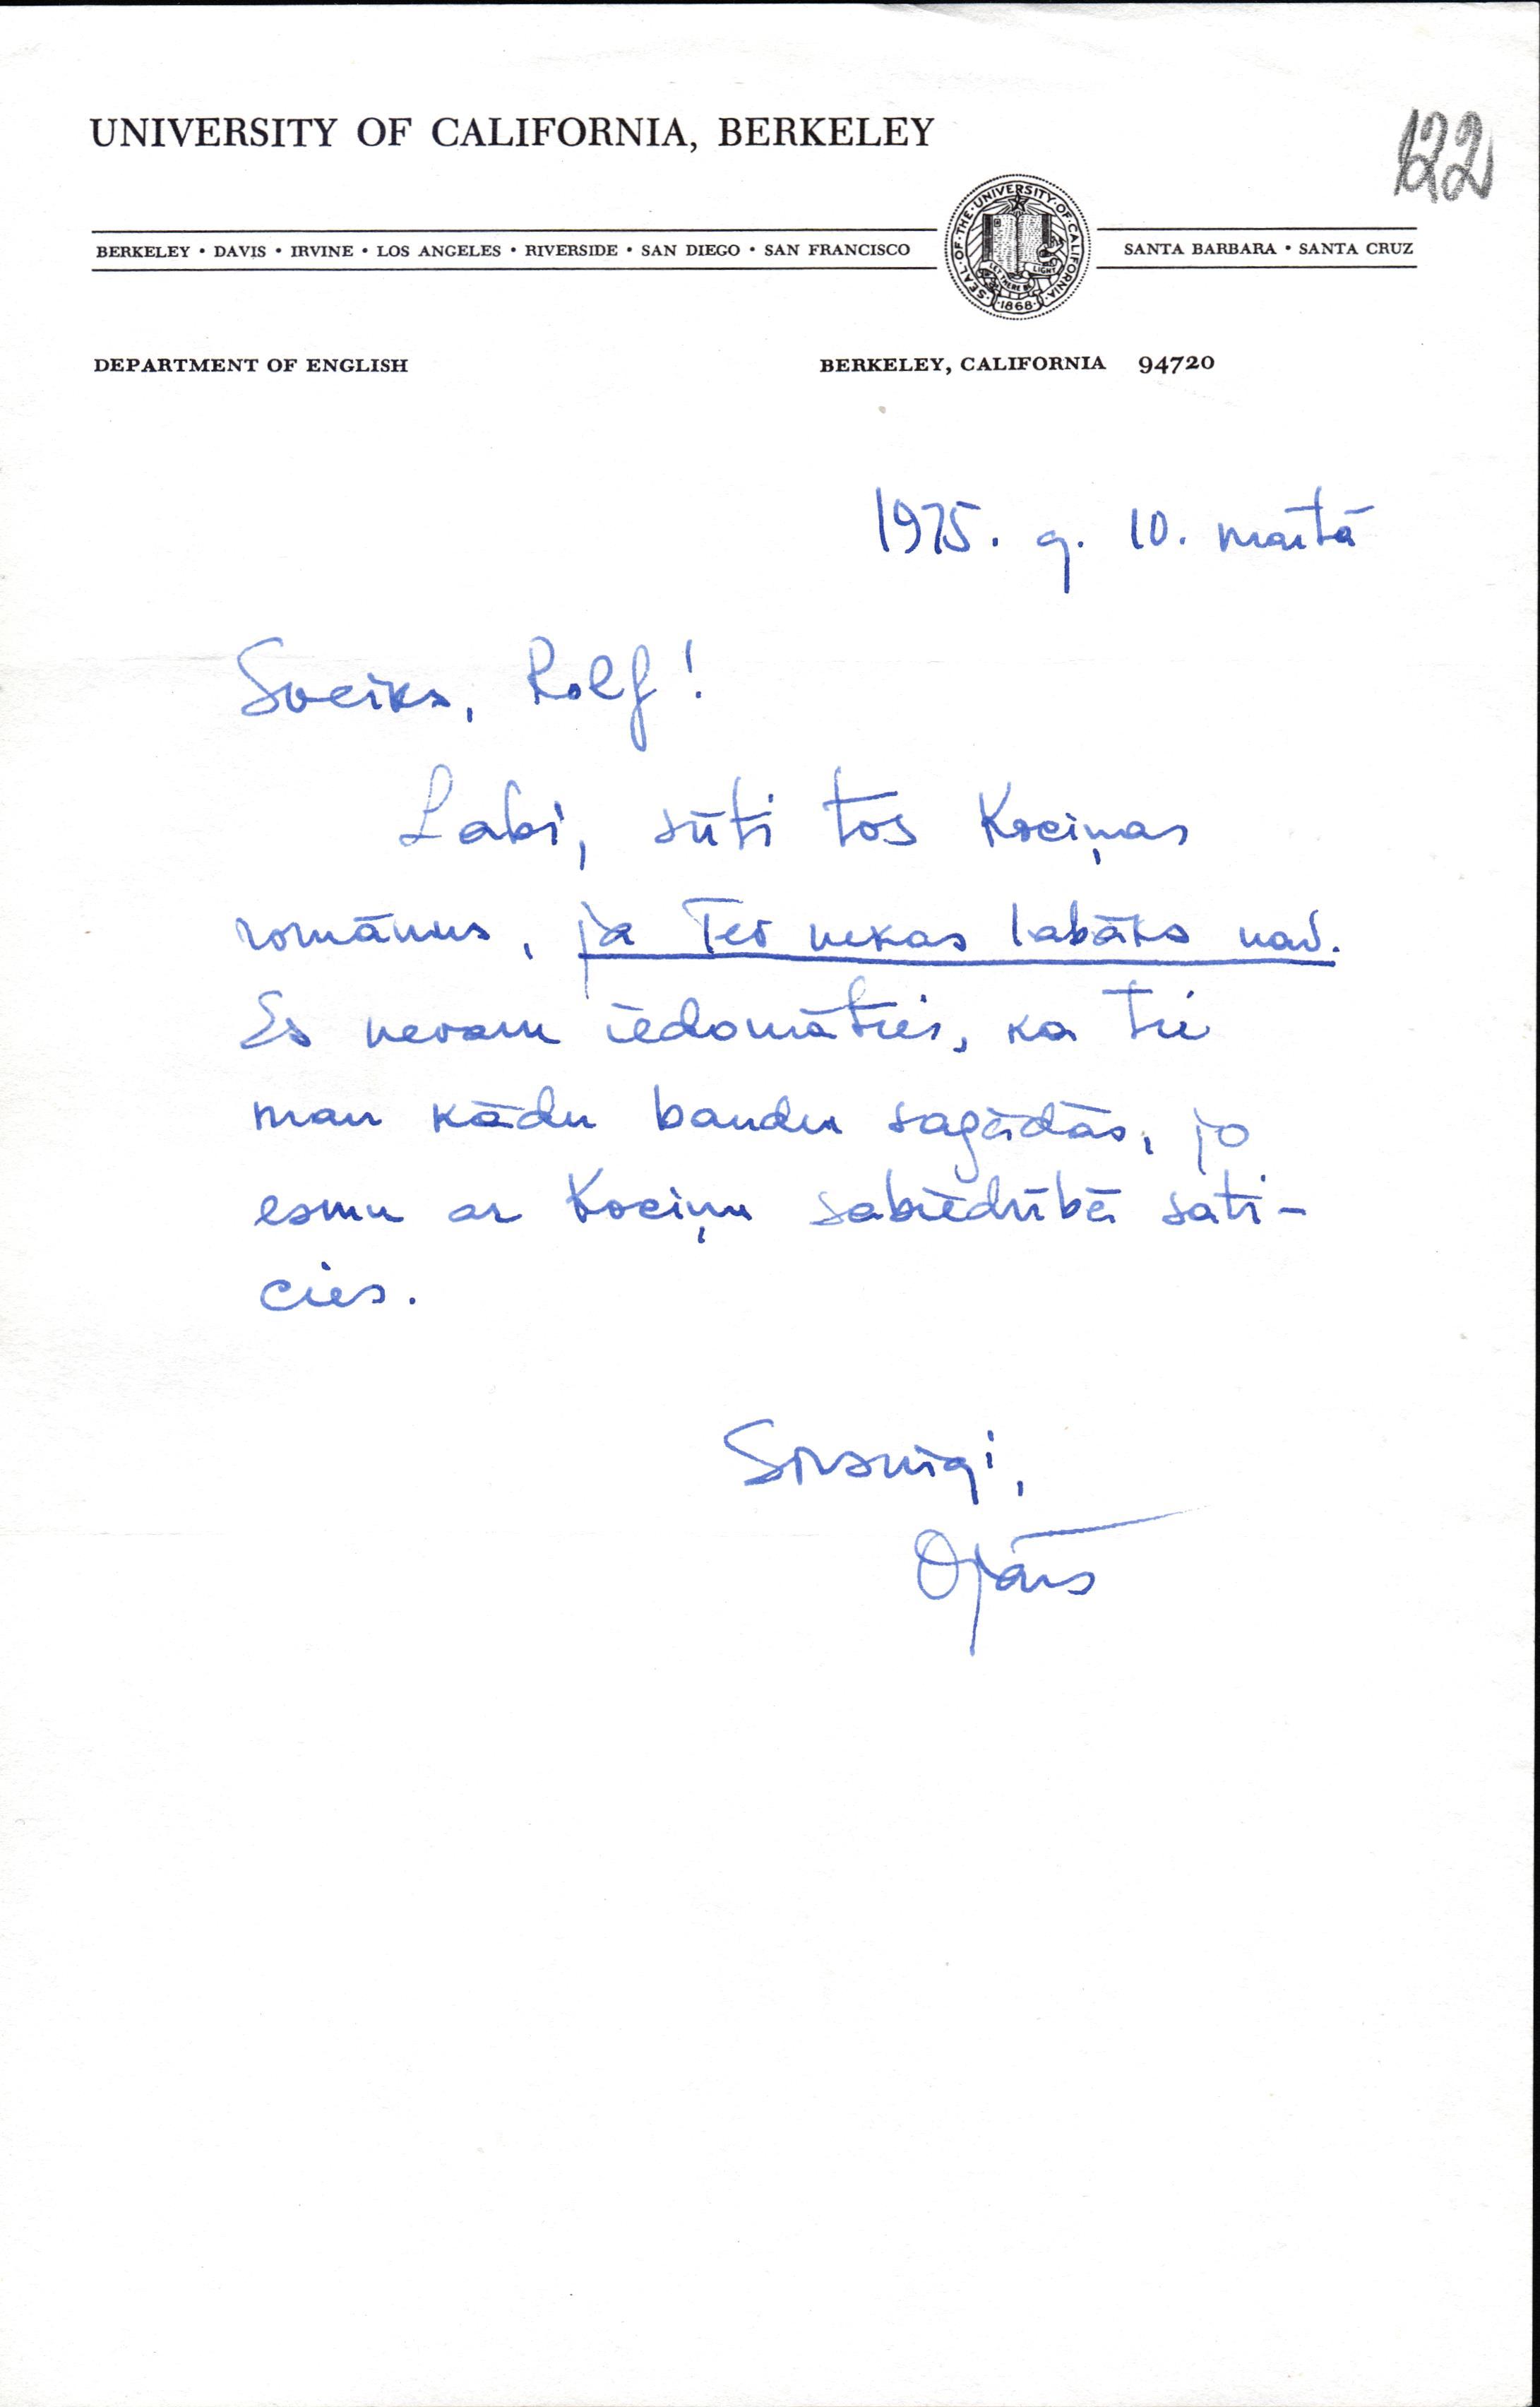 UNIVERSITY OF CALIFORNIA, BERKELEY
122
BERKELEY • DAVIS • IRVINE • LOS ANGELES • RIVERSIDE • SAN DIEGO • SAN FRANCISCO
SEAL • OF • THE • UNIVERSITY • OF • CALIFORNIA
LET THERE BE LIGHT
• 1868 •
SANTA BARBARA • SANTA CRUZ
DEPARTMENT OF ENGLISH
BERKELEY, CALIFORNIA 94720
1975. g. 10. martā
Sveiks, Rolf!
Labi, sūti tos Kreiņas
romānus, ja Tev nekas labāks nav.
Es nevaru iedomāties, ka tie
man kādu baudu sagādās, jo
esmu ar Kreiņu sabiedrībā sati-
cies.
Sirsnīgi,
Ojārs